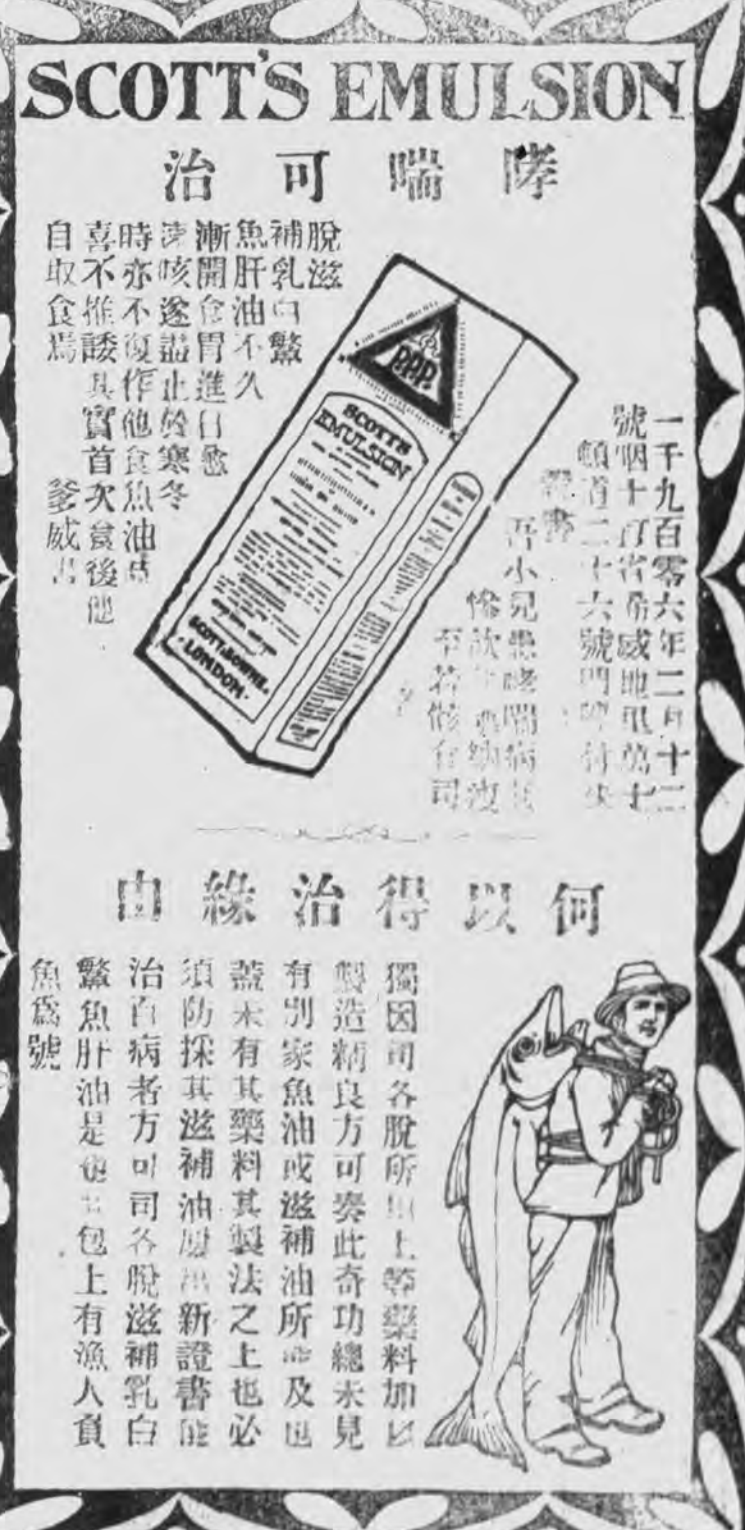 SCOTT'S EMULSION
哮喘可治
一千九百零六年二月十二
號咽十打省希威地里萬七
頓道二十六號門牌
書
吾小兒患哮喘病
慘
至若
司
脫滋
補乳白鰵
魚肝油不久
漸開食胃進日愈
咳遂止於寒冬
時亦不復作他食魚油
喜不推諉其實首次食後他
自取食焉
爹威書
P.P.P.
SCOTT'S
EMULSION
SCOTT & BOWNE,
LONDON.
何以得治緣由
獨因司各脫所出上等藥料加以
製造精良方可奏此奇功總未見
有別家魚油或滋補油所能及也
蓋未有其藥料其製法之上也必
須防採其滋補油新證書能
治百病者方可司各脫滋補乳白
鰵魚肝油是也包上有漁人負
魚爲號